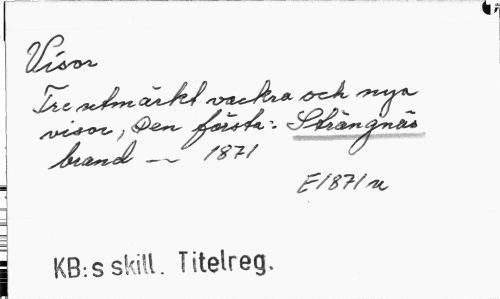 Visor
Tre utmärkt vackra och nya
visor, Den första: Strängnäs
brand — 1871
E1871u
KB:s skill. Titelreg.